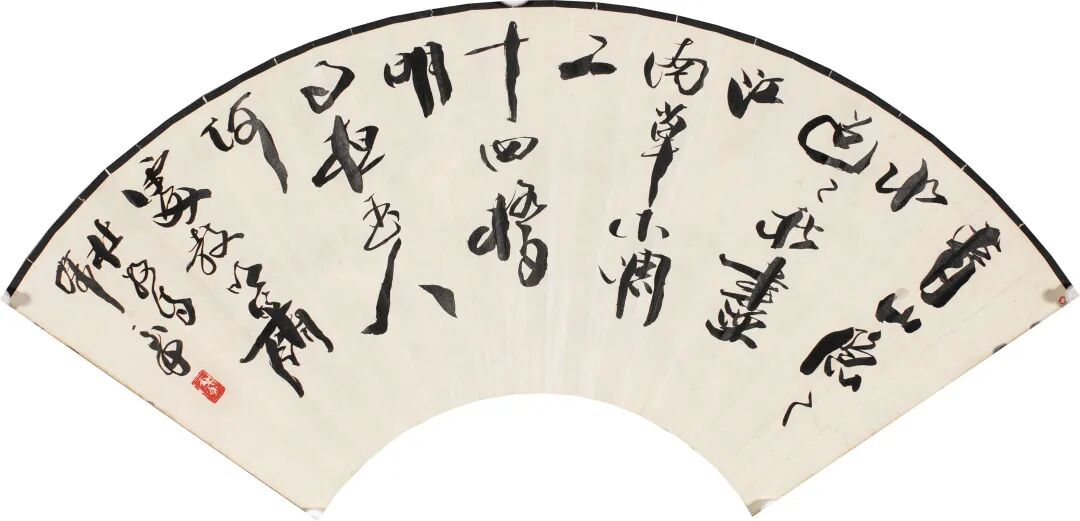 青山隱〻
水
迢〻秋盡
江
南草木凋
二
十四橋
明
月夜玉人
何
處教吹簫